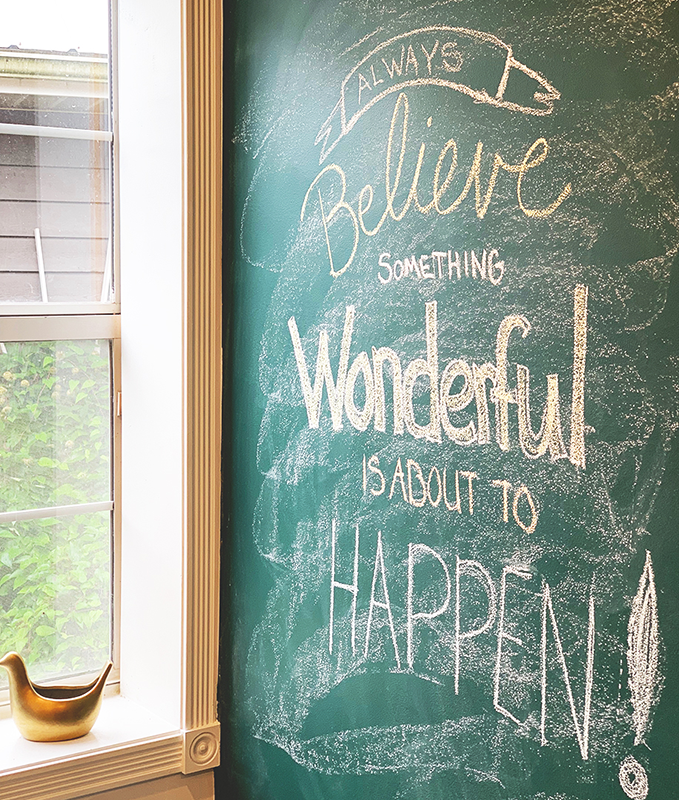 ALWAYS
Believe
SOMETHING
Wonderful
IS ABOUT TO
HAPPEN!